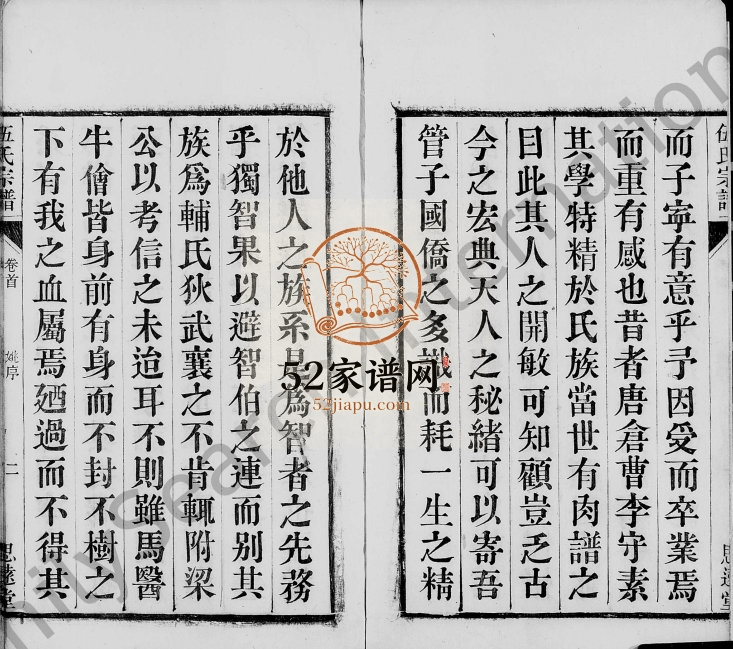 伍氏宗譜
思遠堂
而子寧有意乎予因受而卒業焉
而重有感也昔者唐倉曹李守素
其學特精於氏族當世有肉譜之
目此其人之開敏可知顧豈乏古
今之宏典天人之秘緒可以寄吾
管子國僑之多識而耗一生之精
於他人之族系是為智者之先務
乎獨智果以避智伯之連而別其
族爲輔氏狄武襄之不肯輒附梁
公以考信之未迨耳不則雖馬醫
牛儈皆身前有身而不封不樹之
下有我之血屬焉廼過而不得其
伍氏宗譜
卷首
姚序
二
思遠堂
52家谱网
52jiapu.com